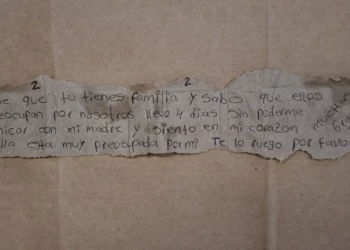 2 2
e que tu tienes familia y sabes que ellos
eocupan por nosotros llevo 4 dias sin poderme
nicar con mi madre y siento en mi corazon
lla esta muy preocupada por mi Te lo ruego por favo